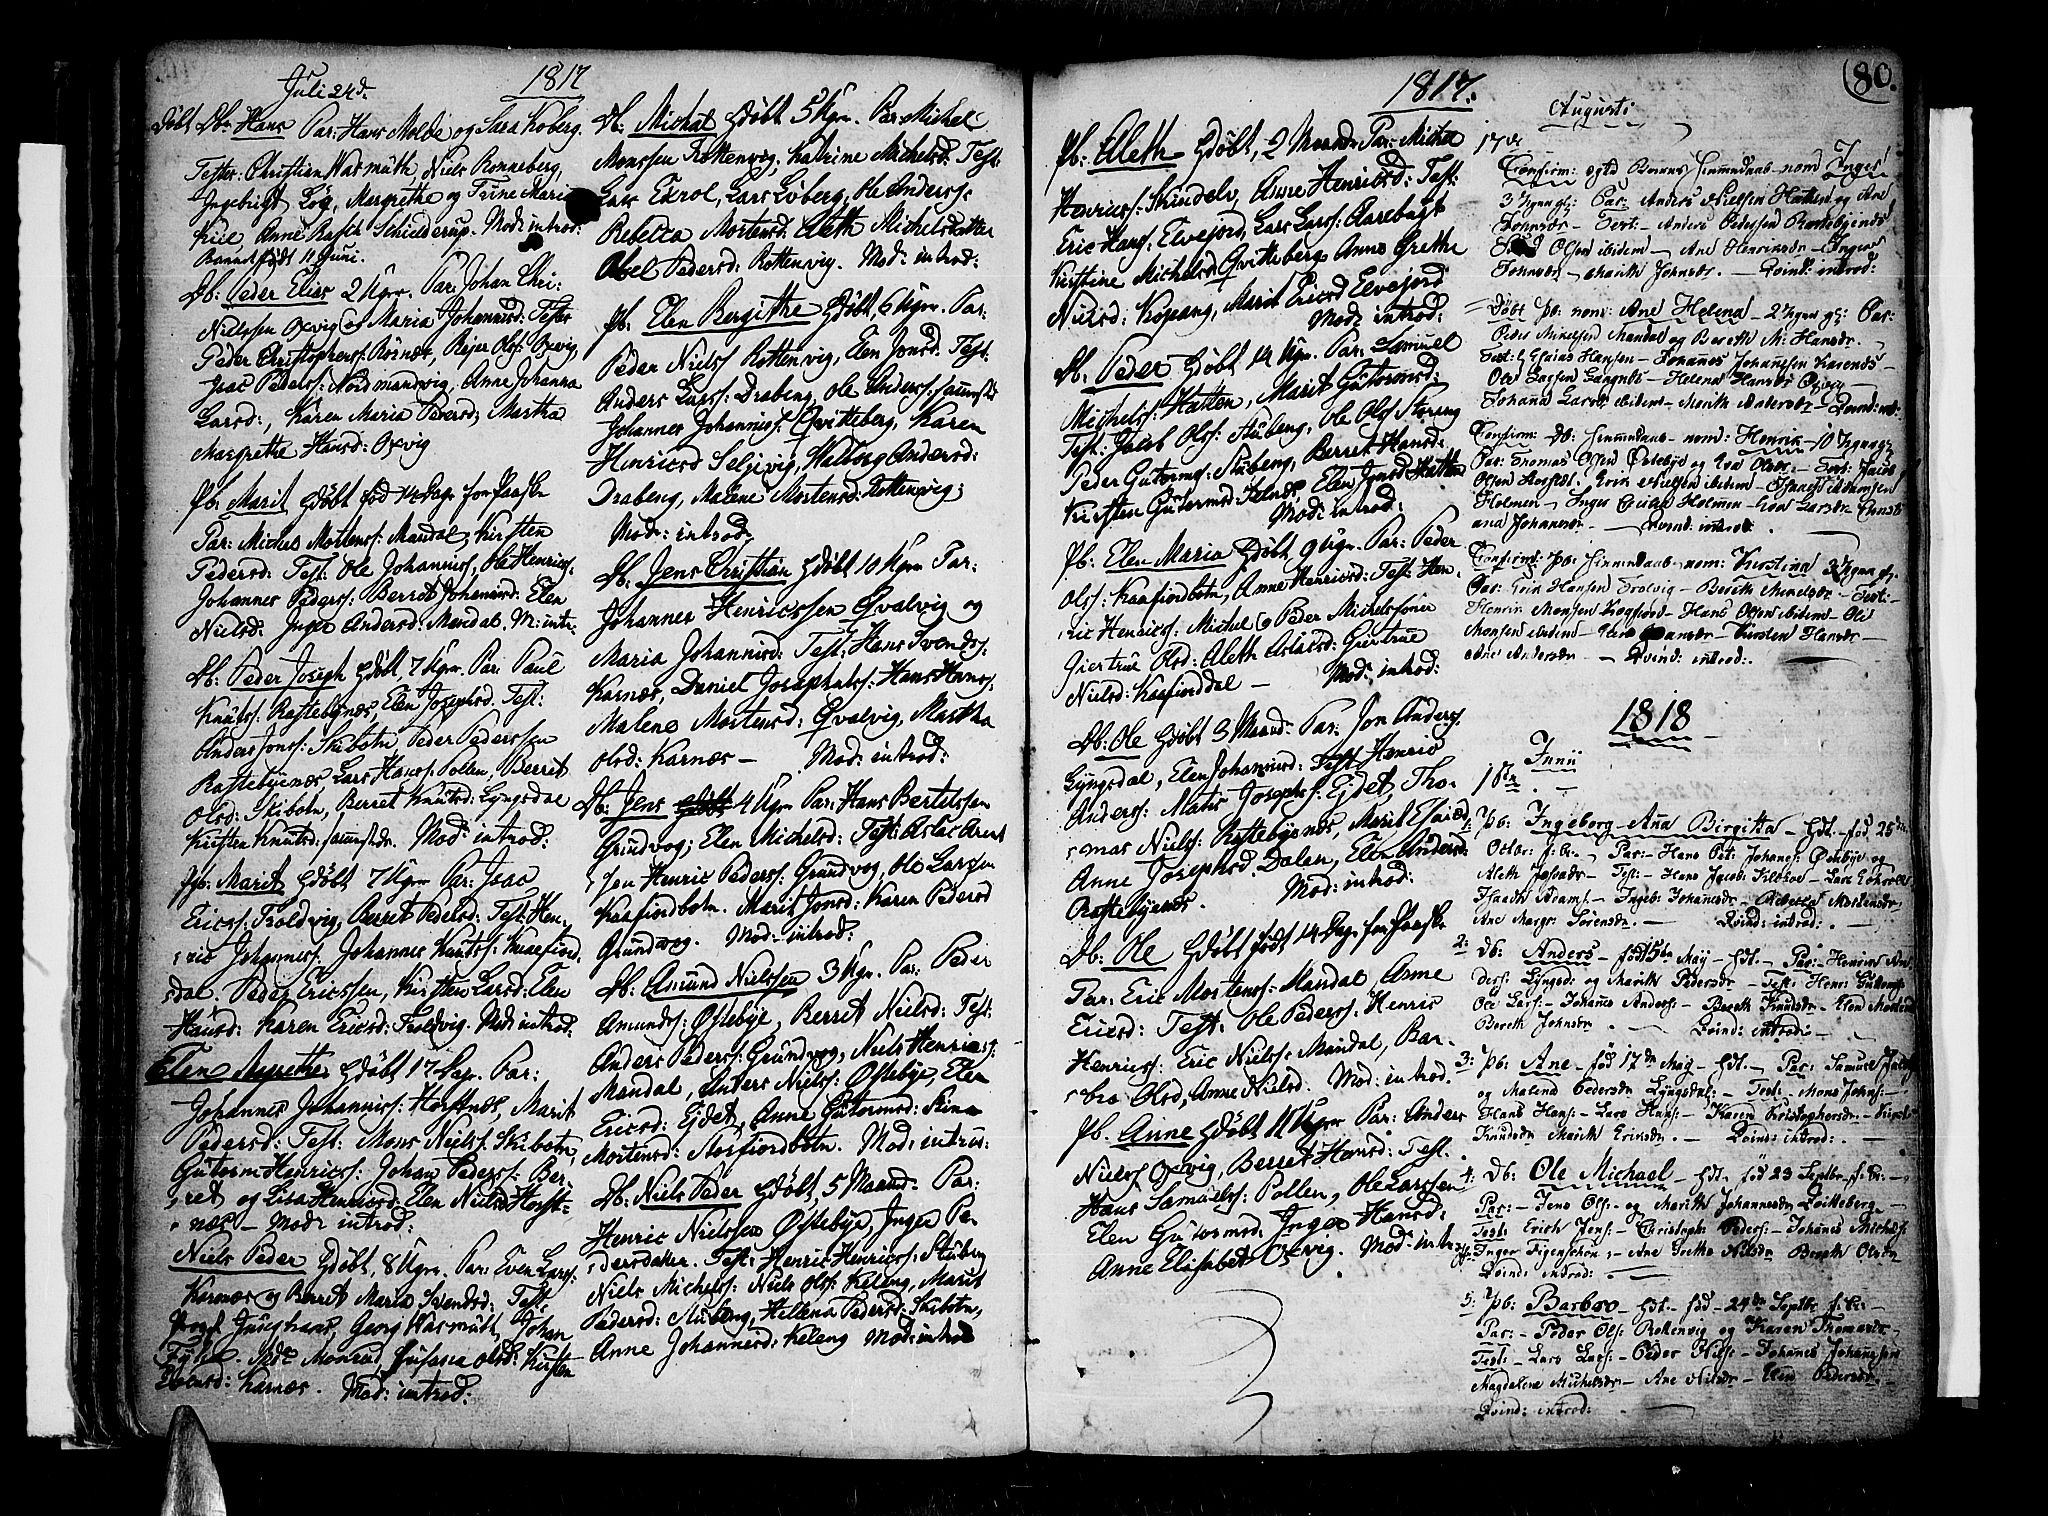 Juli 24 d.
1817
Døbt Db: Hans Par: Hans Molde og Sara Koberg.
Testes: Christian Wasmuth, Niels Rønneberg,
Ingebrigt Løg, Margrethe og Trine Maria
Kiil Anne Schielderup. Mod: introd:
Barnet født 11 Juni.
Db: Peder Elias 2 Ugr. Par: Johan Chri:
Nielssen Oxvig og Maria Johannisd: Testes
Peder Christophers: Rørnæs, Rejer Ols: Oxvig
Isac Peders: Nordmandvig, Anne Johanna
Larsd:, Karen Maria Pedersd; Martha
Margrethe Hansd: Oxvig
Pb: Marit hdøbt fød 14 Dage for Paaske
Par: Michel Mortens: Mandal, Kirsten
Pedersd: Test: Ole Johannis:, Ole Henrics:
Johannes Peders: Berret Johannisd: Elen
Nielsd: Inger Andersd: Mandal. M: intr.
Db: Peder Joseph hdøbt 7 Ugr. Par: Paul
Knuts: Rastebynæs, Elen Josephsd: Test:
Anders Jons: Skibotn Peder Pederssen
Rastebyenæs, Lars Hans: Pollen, Berret
Olsd: Skibotn, Berret Knutsd: Lyngsdal
Kirsten Knutsd: samstdr. Mod: introd:
Pb: Marit hdøbt 7 Ugr Par: Isac
Erics: Troldvig, Berret Pedersd: Test: Hen,
ric Johannes: Johannes Knuts: Kaafiord,
dal. Peder Ericssen, Kirsten Larsd: Elen
Hansd: Karen Ericsd: Troldvig. Mod: introd.
Elen Margrethe hdøbt 17 Dage. Par:
Johannes Johannis: Horsnæs, Marit
Pedersd: Test: Mons Niels: Skibotn,
Gutorm Henrics: Johan Peders: Ber,
ret og Lisa Henricsd: Elen Nielsd Horsi-
næs – Mod: introd:
Niels Peder hdøbt, 8 Ugr. Par: Even Lars:
Karnæs og Berret Maria Svendsd: Test:
Junghans, Georg Wasmutt, Johan
Monrad, Susana Olsd: Kirsten
Evensd: Karnæs. Mod: introd:
Db: Michal hdøbt 5 Ugr. Par Michel
Monssen Rottenvig, Katrine Michelsd: Test:
Lars Exrol, Lars Løberg, Ole Anders:
Rebecca Mortensd: Eleth Michelsdatter
Abel Pedersd: Rottenvig. Mod: introd:
Pb: Elen Bergithe hdøbt, 6 Ugr. Par:
Peder Niels: Rottenvig, Elen Jonsd. Test:
Anders Lars: Drabeng, Ole Anders: samstd
Johannes Johannis: Qvitteberg, Karen
Henricsd Seljevig, Walborg Andersd:
Drabeng, Malene Mortensd: Rottenvig;
Mod: introd,
Db: Jens Christian hdøbt 10 Ugr Par:
Johannes Henricssen Qvalvig og
Maria Johannisd: Test: Hans Svends:
Karnæs, Daniel Josephats: Hans Hans:
Malene Mortensd: Qvalvig, Martha
Olsd: Karnæs – Mod: introd:
Db: Jens 4 Ugr Par: Hans Bertelssen
Grundvog; Elen Michelsd: Test: Aslac Arent
sen Henric Peders: Grundvog, Ole Larssen
Kaafiordbotn. Marit Jonsd: Karen Pedersd
Grundvog. Mod: introd:
Db: Amund Nielssen 3 Ugr. Par: Peder
Amunds: Østebye, Berret Nielsd: Test:
Anders Peders: Grundvog, Niels Henrics:
Mandal, Anders Niels: Østebye, Elen
Ericsd: Ejdet, Anne Gutormsd:
Mortensd: Storfiordbotn. Mod: introd:
Db: Niels Peder hdøbt, 5 Maand: Par:
Henric Nielssen Østebye, Inger Pe,
dersdater. Test: Henric Henrics: Stubeng
Niels Michels: Niels Ols: Keleng, Marit
Pedersd: Stubeng, Hellena Pedersd: Skibotn,
Anne Johannesd: Keleng Mod: introd
1817.
Pb: Aleth hdøbt, 2 Maaned: Par: Michel
Henrics: Skindelv, Anne Henricsd: Test:
Eric Hans: Elvejord, Lars Lars: Aarebugt
Kirstine Michelsd: Qvitteberg Anne Grethe
Nielsd: Kopang, Marit Ericsd Elvejord
Mod: introd:
Db: Peder hdøbt 14 Ugr. Par: Samuel
Michels: Hatten, Marit Gutormsd:
Test: Jacob Ols: Stubeng, Ole Ols: Storeng
Peder Gutorms: Stubeng, Berret Hansd:
Kirsten Gutormsd: Elen Jonsd: Hatten
Mod: introd:
Pb: Elen Maria hdøbt 9 Ugr. Par: Peder
Ols: Kaafiordbotn, Anne Henricsd: Test: Hen,
ric Henrics: Michel og Peder Michelsønner
Giertrue Olsd: Aleth Aslacsd: Giertrue
Nielsd: Kaafiorddal – Mod: introd:
Db: Ole hdøbt 3 Maand: Par: Jon Anders:
Lyngsdal, Elen Johannisd: Test: Henric
Anders: Matis Josephs: Ejdet, Tho-
mas Niels: Rastebyenæs, Marit Esaiæd:
Anne Josephsd. Dalen, Elen Andersd:
Rastebyenæs. Mod: introd:
Db: Ole hdøbt født 14 Dage for Paaske
Par: Eric Mortens: Mandal Anne
Ericsd: Test: Ole Peders: Henric
Henrics: Eric Niels: Mandal, Bar-
bra Olsd, Anne Nielsd: Mod: introd.
Pb. Anne hdøbt 11 Ugr Par: Anders
Niels: Oxvig, Berret Hansd: Test.
Hans Samuels: Pollen, Ole Larssen
Elen Gutormsd: Inger Hansd:
Anne Elisabet Oxvig. Mod: introd.
80.
Augusti
17de
Confirm: ogtd Barnes hiemmdaab nom Inger
3 Ugrs gl: Par: Anders Nielsen Hatten og An
Johnsdr – Test: – Anders Pedersen Rastebyenæs
Olsen ibidem – Ane Henriksdr – Inger
Johnsdr – Marith Johnsdr. – Qvind: introd:
Døbt Pb: nom: Ane Helena – 2 Ugrs gl: Par:
Peder Mikelsen Mandal og Bereth M: Hansdr. –
Test: Esaias Hansen – Johannes Johannesen Karenæs –
Ole Larsen Langnes – Helena Hansdr Oxvig –
Johana Larsdr ibidem – Marith Andersdr – Qvind: int:
Confirm: Db: hiemmdaab – nom: Henrik – 10 Ugrs gl:
Par: Thomas Olsen Østebye og Eva Olsdr. – Test: Jacob
Olsen – Erik Nielsen ibidem – Isaach Adamsen
Holmen – Inger Holmen – Eva Larsdr Christi
ana Johansdr. – Qvind: introd.
Confirm: Pb: hiemmdaab – nom: Kirstina 3 Ugrs gl:
Par: Erik Hansen Trolvig – Bereth Nielsdr – Test:
Henrik Monsen Kaafiord – Hans Olsen ibidem – Ole
Monsen ibidem – Hansdr – Kirsten Hansdr –
Ane Andersdr – Qvind: introd:.
1818
Junii
1:
Pb: Ingeborg Ana Birgitta – hdt. – fød 25de
Octbr: f: år – Par: – Hans Pet: Johans: Østebye og
Aleth Jafsadr – Test: – Hans Jacob: – Lars
Isaach Adams: – Ingeb: Johansdr – Rebecca Mortensdr
Ane Margr: Sørensdr. – Qvind: introd: –
2: Db: Anders – fød 15de Maij – hdt. – Par: – Henrik An
ders: Lyngsd: og Marith Pedersdr – Test: Henr: Guttorms:
Ole Lars: – Johannes Anders: – Bereth Knudsdr – Elen Mortensd
Bereth Johnsdr. – Qvind: introd: –
3: Pb: Ane – fød 17de Maij – hdt. – Par: Samuel
og Malena Pedersdr Lyngsdal: – Test: – Mons Johns: –
Hans Hans: – Lars Hans: – Karen Kristophersdr –
Knudsdr Marith Eriksdr. – Qvind: introd: –
4: Db: Ole Michael – hdt. fød 23 Septbr – f: år: –
Par: – Jens Ols: – og Marith Johannesdr Qvitteberg –
Test: Erich Jens: – Christoph: Peders: – Johanes Michels:
Inger Figenschou: – Ane Gretha Nilsdr Bereth Olsdr
Qvind: introd: –
5: Pb: Barbro – hdt. – fød – 24de Septbr f: år: –
Par: – Peder Ols: Rottenvig og Karen Thomasdr
Test: – Lars Lars: – Peder Nils: – Johanes Johannsen
Magdalena Michelsdr – Ane Nilsdr – Elen Pedersdr. –
Qvind: introd: –